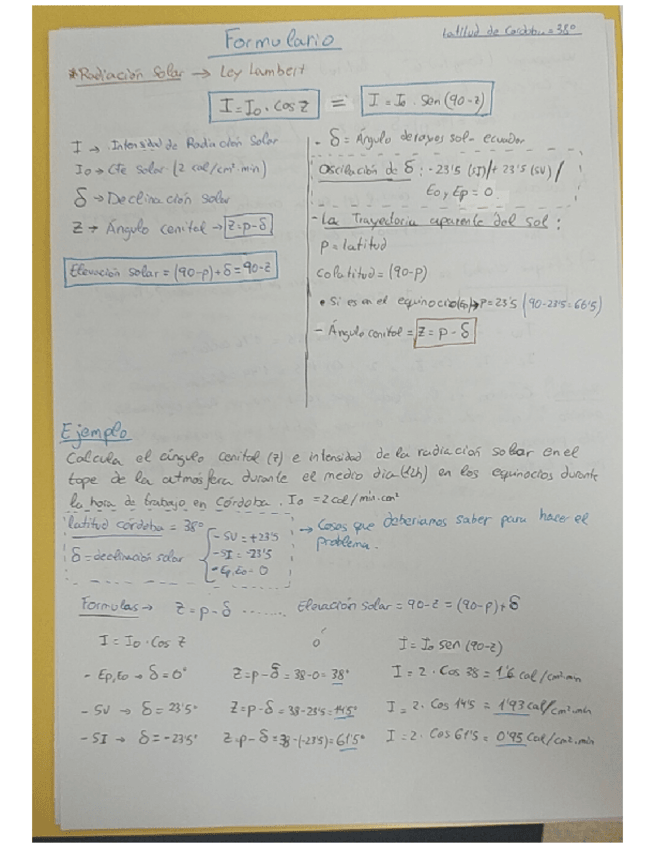 Latitud de Córdoba = 38º
Formulario
*Radiación Solar → Ley Lambert
I = I₀ · Cos Z = I = I₀ · Sen (90-z)
I → Intensidad de Radiación Solar
I₀ → Cte Solar (2 cal/cm²·min)
δ → Declinación solar
Z → Ángulo cenital → Z = p - δ
Elevación Solar = (90-p) + δ = 90-z
- δ = Ángulo de rayos sol - ecuador
Oscilación de δ : -23'5 (SI) / + 23'5 (SV) /
Eo, Ep = 0
- La Trayectoria aparente del sol :
p = latitud
colatitud = (90-p)
• Si es en el equinoccio (Eo) → p = 23'5 (90-23'5 = 66'5)
- Ángulo cenital = Z = p - δ
Ejemplo
Calcula el ángulo cenital (z) e intensidad de la radiación solar en el
tope de la atmósfera durante el medio dia (12h) en los equinocios durante
la hora de trabajo en Córdoba. I₀ = 2 cal/min·cm²
latitud córdoba = 38º
δ = declinación solar
- SV = +23'5
- SI = -23'5
- Ep, Eo = 0
→ Cosas que deberiamos saber para hacer el
problema.
Formulas → Z = p - δ ....... Elevación solar = 90-z = (90-p) + δ
I = I₀ · Cos z ó I = I₀ sen (90-z)
- Ep, Eo → δ = 0º Z = p - δ = 38-0 = 38º I = 2 · Cos 38 = 1'6 cal/cm²min
- SV → δ = 23'5º Z = p - δ = 38-23'5 = 14'5º I = 2 · Cos 14'5 = 1'93 cal/cm²·min
- SI → δ = -23'5º Z = p - δ = 38-(-23'5) = 61'5º I = 2 · Cos 61'5 = 0'95 Cal/cm²·min